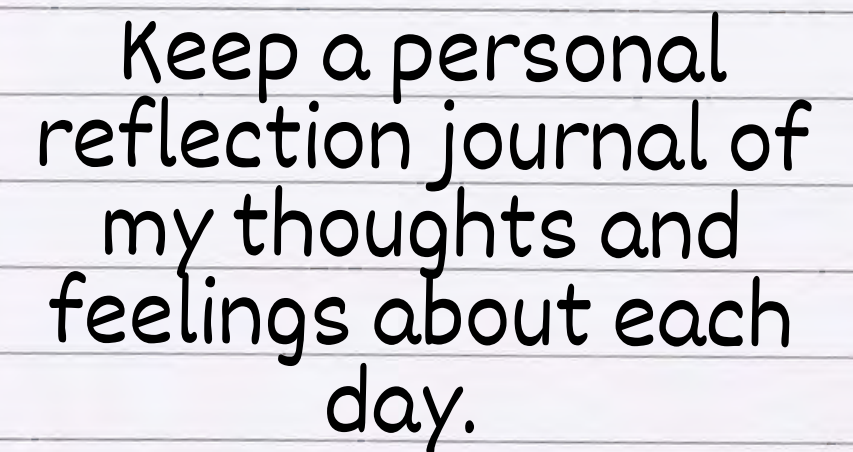 Keep a personal
reflection journal of
my thoughts and
feelings about each
day.